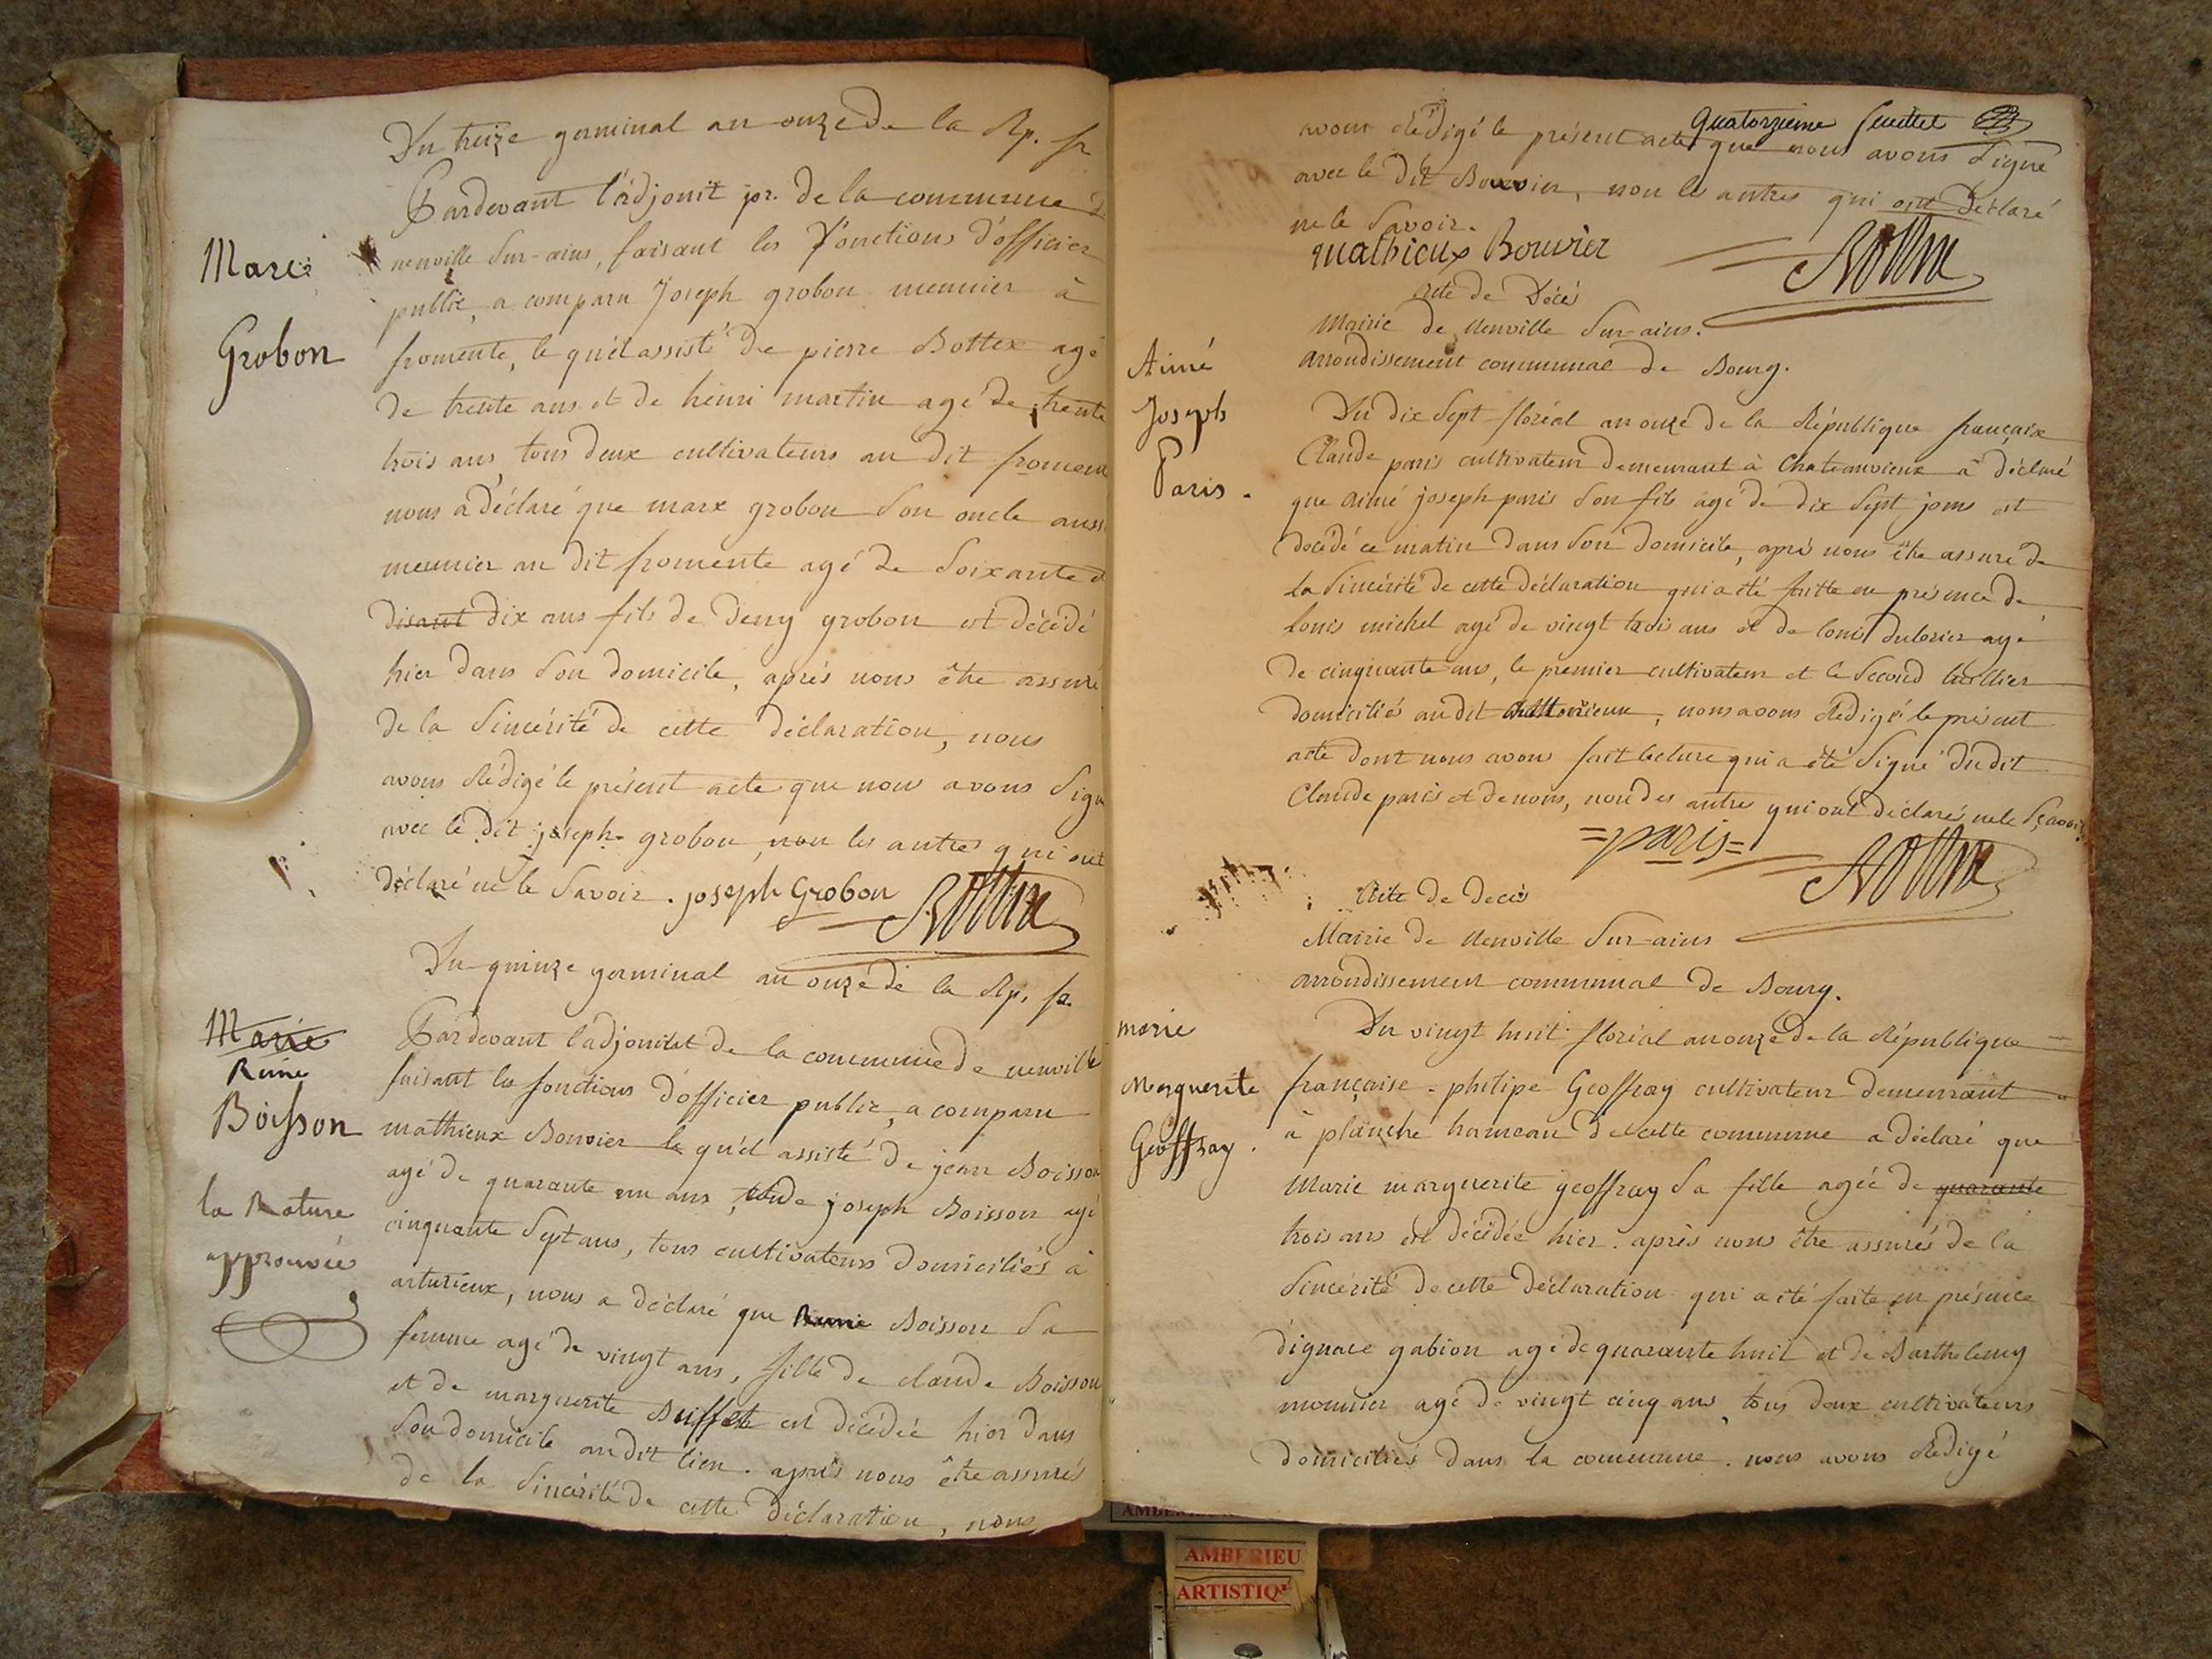 Du treize germinal an onze de la Rp. fr
Pardevant l'adjoint pr. de la commune d
neuville Sur-ains, faisant les fonctions d'officier
public, a comparu Joseph grobon meunier à
fromente, le quel assisté de pierre Bottex agé
de trente ans et de henri martin agé de trente
trois ans tous deux cultivateurs au dit froment
nous a déclaré que marc grobon son oncle aussi
meunier au dit fromente agé de Soixante et
disant dix ans fils de Deny grobon est décédé
hier dans Son domicile, après nous être assuré
de la Sincérité de cette déclaration, nous
avons Rédigé le présent acte que nous avons Signé
avec le dit joseph grobon, non les autres qui ont
déclaré ne le Savoir. joseph Grobon
Marc
Grobon
Du quinze germinal an onze de la Rp. fr.
Pardevant l'adjoint de la commune de neuville
faisant les fonctions d'officier public, a comparu
mathieux Bouvier le quel assisté de jean Boisson
agé de quarante un ans, de joseph Boisson agé
cinquante Sept ans, tous cultivateurs domiciliés à
arturieux, nous a déclaré que Reine Boisson Sa
femme agé de vingt ans, fille de claude Boisson
et de marguerite Buiffet est décédée hier dans
Son domicile au dit lieu. après nous être assurés
de la Sincérité de cette déclaration, nous
Marie
Reine
Boisson
la Rature
approuvée
Quatorzieme feuillet
avons Rédigé le présent acte que nous avons Signé
avec le dit Bouvier, non les autres qui ont déclaré
ne le Savoir.
Mathieux Bouvier
acte de Décès
Mairie de Neuville Sur-ains.
arrondissement communal de Bourg.
Aimé
Joseph
Paris.
Du dix Sept floréal an onze de la République française
Claude paris cultivateur demeurant à Chateauvieux a déclaré
que aimé joseph paris Son fils agé de dix Sept jours est
décédé ce matin dans Son domicile, après nous être assuré de
la Sincérité de cette déclaration qui a été faitte en présence de
louis michel agé de vingt trois ans et de louis dulorier agé
de cinquante ans, le premier cultivateur et le Second
domiciliés au dit, nous avons Rédigé le présent
acte dont nous avons fait lecture qui a été Signé du dit
Claude paris et de nous, non des autres qui ont déclarés ne le Sçavoir.
=paris=
Acte de Decès
Mairie de Neuville Sur-ains
arrondissement communal de Bourg.
marie
Marguerite
Geoffray.
Du vingt huit floréal an onze de la République
française. philipe Geoffray cultivateur demeurant
à planche hameau de cette commune a déclaré que
Marie marguerite geoffray Sa fille agée de quarante
trois ans est décédée hier. après nous être assurés de la
Sincérité de cette déclaration qui a été faite en présence
d'ignace gabion agé de quarante huit et de Barthelemy
monnier agé de vingt cinq ans, tous deux cultivateurs
domiciliés dans la commune. nous avons Rédigé
AMBERIEU
ARTISTIQ